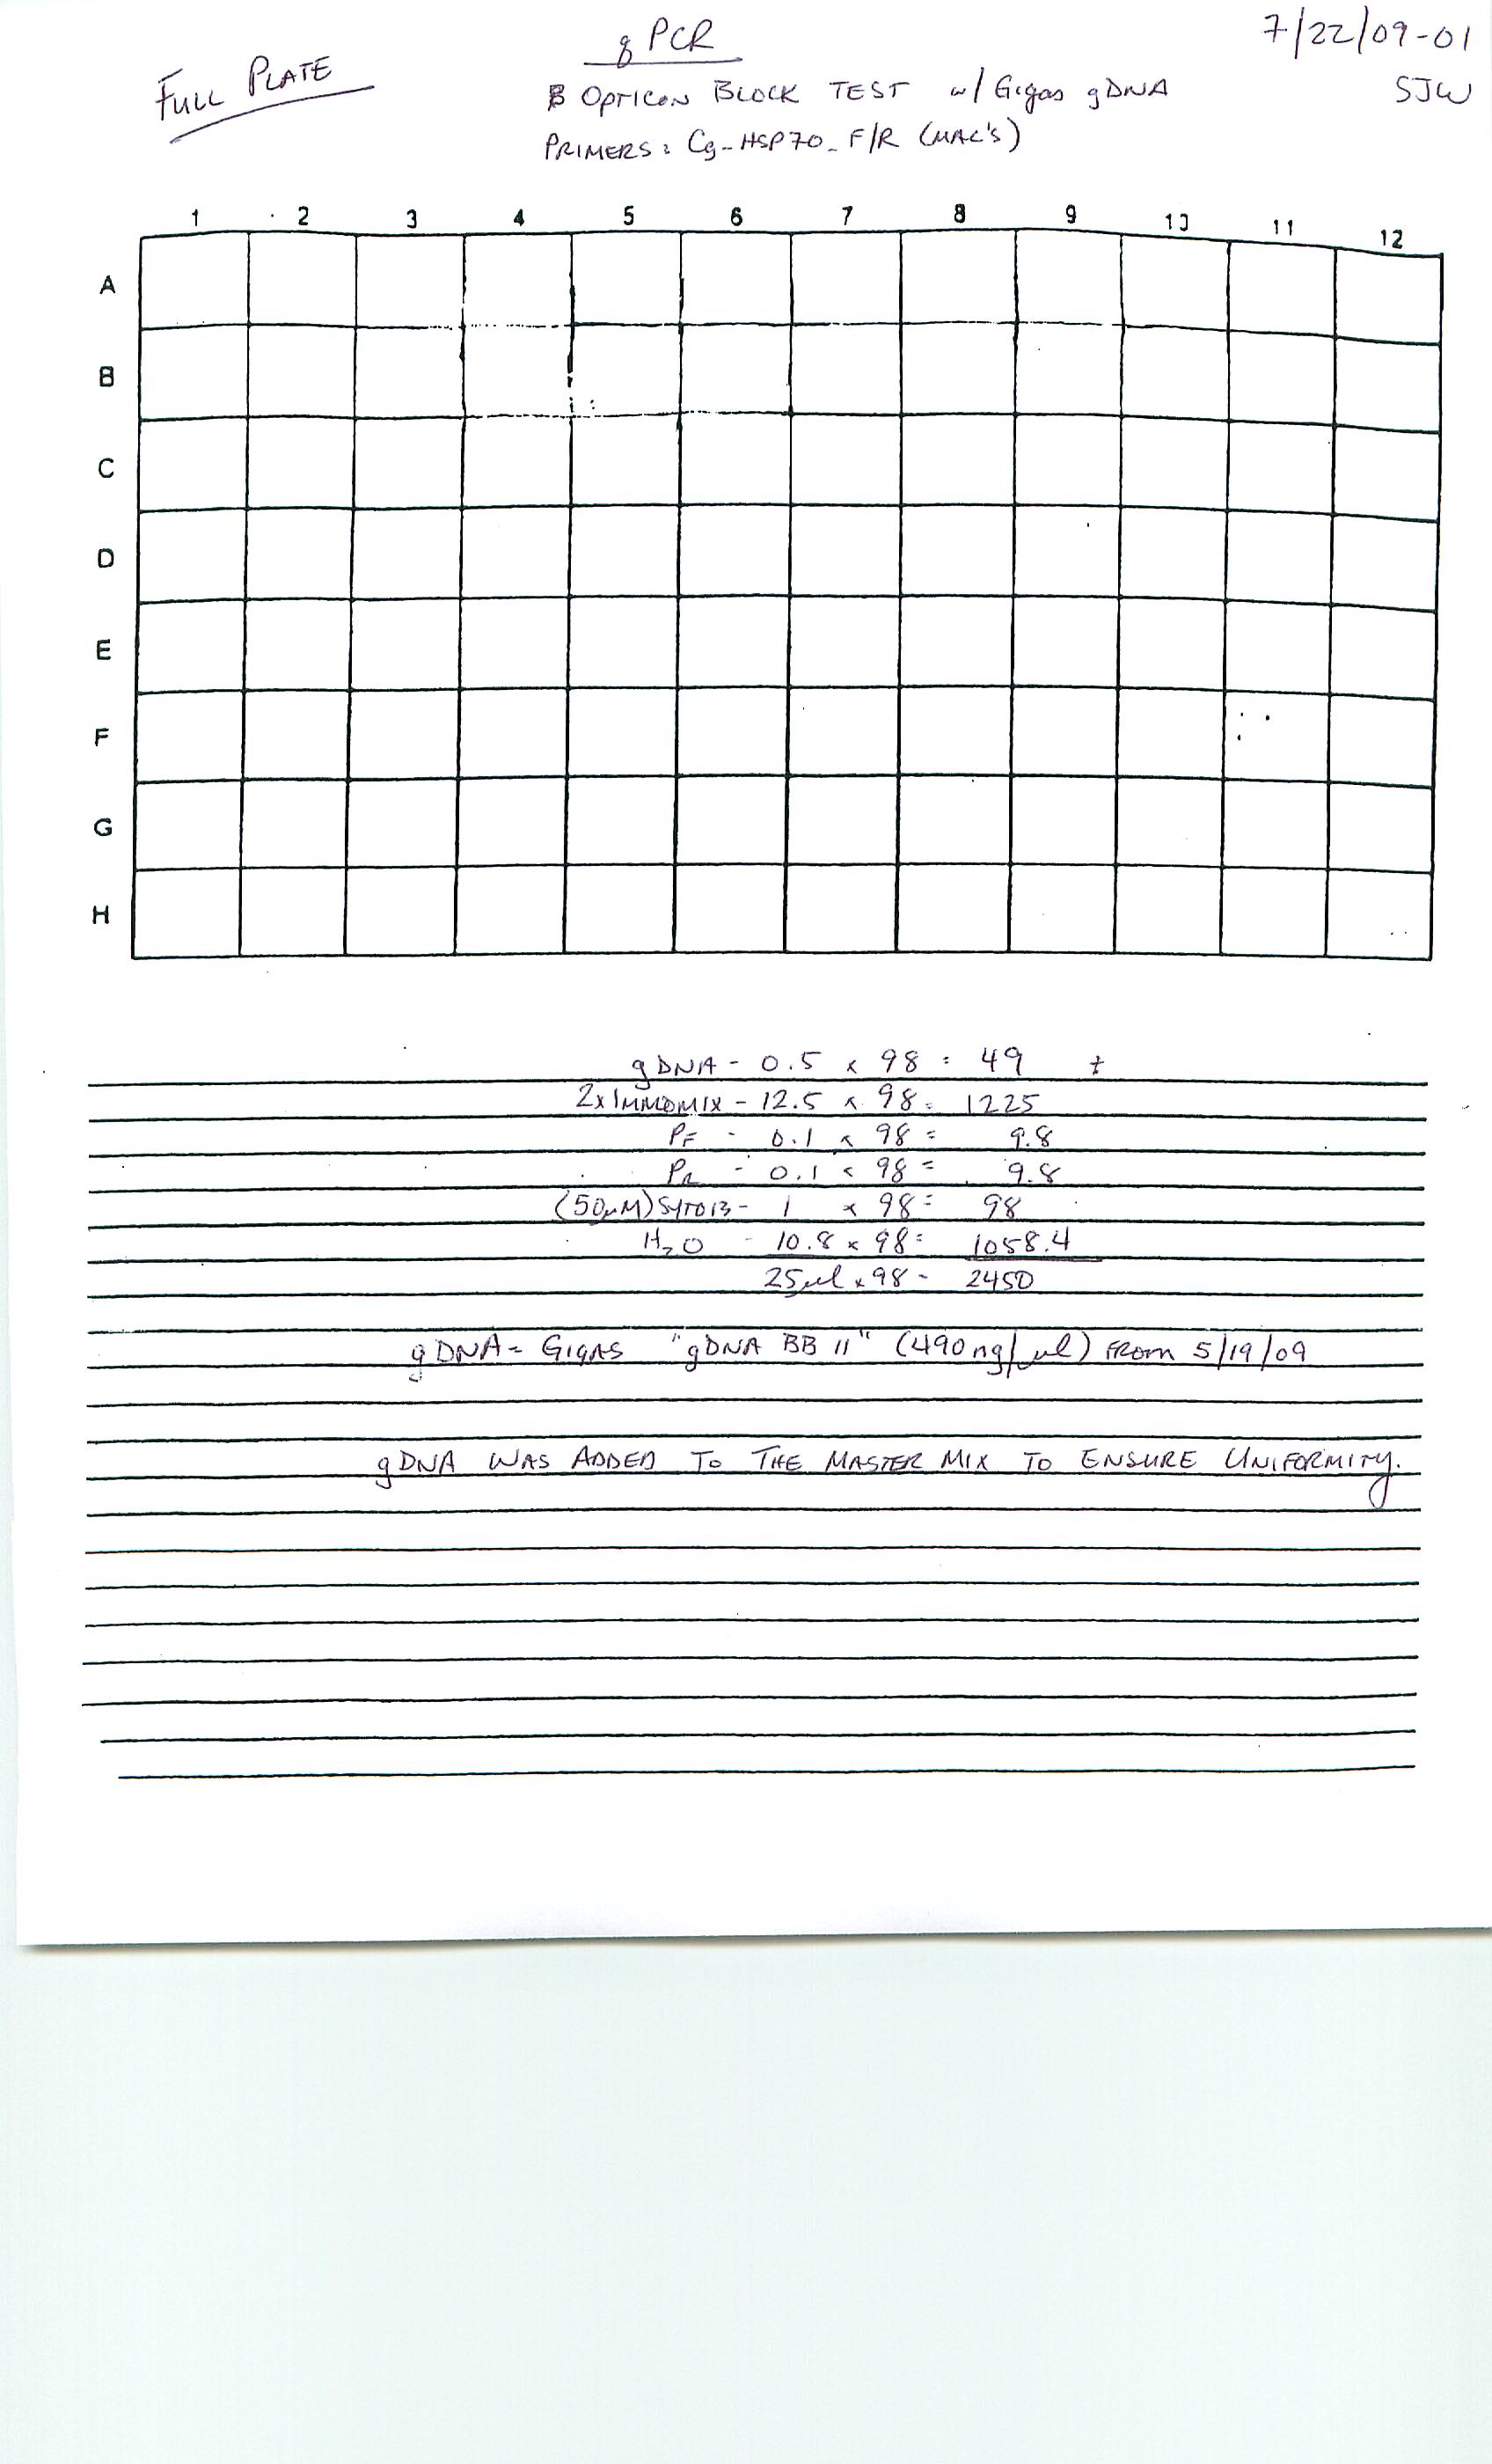 qPCR
7/22/09-01
FULL PLATE
OPTICON BLOCK TEST w/ Gigas gDNA
SJW
PRIMERS: Cg-HSP70-F/R (MAC'S)
1 2 3 4 5 6 7 8 9 10 11 12
A
B
C
D
E
F
G
H
gDNA - 0.5 x 98 = 49 +
2x IMMOMIX - 12.5 x 98 = 1225
PF - 0.1 x 98 = 9.8
PR - 0.1 x 98 = 9.8
(50µM) SYTO13 - 1 x 98 = 98
H2O - 10.8 x 98 = 1058.4
25µl x 98 - 2450
gDNA = GIGAS "gDNA BB 11" (490ng/µl) FROM 5/19/09
gDNA WAS ADDED TO THE MASTER MIX TO ENSURE UNIFORMITY.